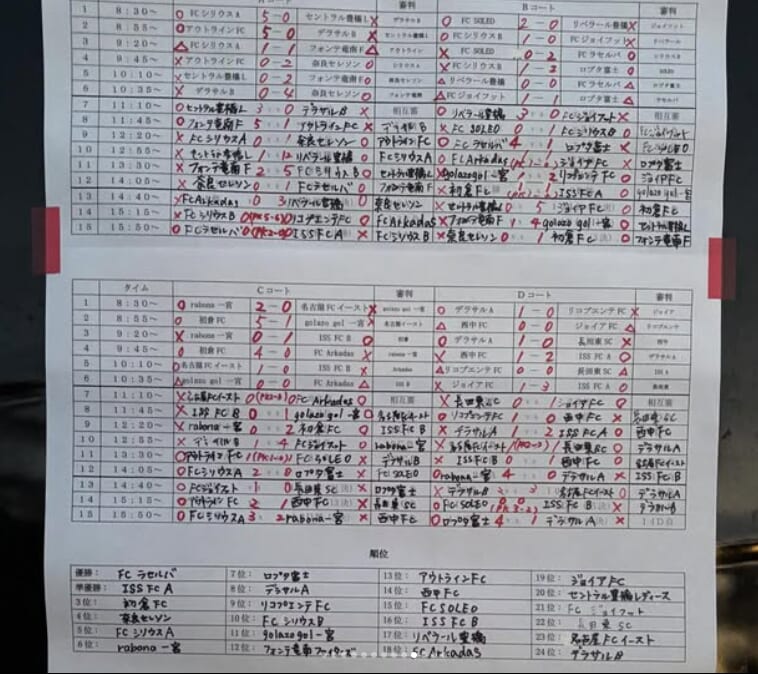 審判 Bコート 審判
1 8:30～ ○ FCシリウスA 5－0 セントラル豊橋L × デラサルB ○ FC SOLEO 2－0 リベラール豊橋 × ジョイフット
2 8:55～ ○ アウトラインFC 5－0 デラサルB × セントラル豊橋L ○ FCシリウスB 1－0 FCジョイフット × リベラール
3 9:20～ △ FCシリウスA 1－1 フォンテ竜南F △ アウトライン × FC SOLEO 0－2 FCラセルバ ○ シリウスB
4 9:45～ × アウトラインFC 0－2 奈良セレソン ○ シリウスA × FCシリウスB 1－3 ロプタ富士 ○ SOLEO
5 10:10～ × セントラル豊橋L 0－2 フォンテ竜南F ○ 奈良セレソン △ リベラール豊橋 0－0 FCラセルバ △ ロプタ富士
6 10:35～ × デラサルB 0－4 奈良セレソン ○ フォンテ竜南 △ FCジョイフット 1－1 ロプタ富士 △ ラセルバ
7 11:10～ ○ セントラル豊橋L 3 0 デラサルB × 相互審 ○ リベラール豊橋 3 0 FCジョイフット × 相互審
8 11:45～ ○ フォンテ竜南F 5 1 アウトラインFC × デラサルB × FC SOLEO 0 1 FCシリウスB ○ FCジョイフット
9 12:20～ × FCシリウスA 0 1 奈良セレソン ○ アウトラインFC ○ FCラセルバ 4 1 ロプタ富士 × FC SOLEO
10 12:55～ × セントラル豊橋L 1 12 リベラール豊橋 ○ FCシリウスA ○ FC Arkadas ジョイアFC × ロプタ富士
11 13:30～ × フォンテ竜南F 2 5 FCシリウスB ○ セントラル豊橋L × golazo gol 一宮 1 2 リコプエンテFC ○ ジョイアFC
12 14:05～ × 奈良セレソン 0 1 FCラセルバ ○ フォンテ竜南F × 初倉FC ISS FC A ○ golazo gol 一宮
13 14:40～ × FC Arkadas 0 3 リベラール豊橋 ○ 奈良セレソン × セントラル豊橋L 0 5 ジョイアFC ○ 初倉FC
14 15:15～ × FCシリウスB 0 (PK5-6) 0 リコプエンテFC ○ FC Arkadas × フォンテ竜南F 1 4 golazo gol 一宮 ○ セントラル豊橋L
15 15:50～ ○ FCラセルバ 0 (PK2-0) 0 ISS FC A × FCシリウスB × 奈良セレソン 0 1 初倉FC ○ フォンテ竜南F
タイム Cコート 審判 Dコート 審判
1 8:30～ ○ rabona 一宮 2－0 名古屋FCイースト × golazo gol 一宮 ○ デラサルA 1－0 リコプエンテFC × ジョイア
2 8:55～ ○ 初倉FC 5－1 golazo gol 一宮 × 名古屋イースト △ 西中FC 0－0 ジョイアFC △ リコプエンテ
3 9:20～ × rabona 一宮 0－1 ISS FC B ○ 初倉 ○ デラサルA 1－0 長田東SC × 西中
4 9:45～ ○ 初倉FC 4－0 FC Arkadas × rabona 一宮 × 西中FC 1－2 ISS FC A ○ デラサルA
5 10:10～ ○ 名古屋FCイースト 1－0 ISS FC B × Arkadas △ リコプエンテFC 0－0 長田東SC △ ISS A
6 10:35～ △ golazo gol 一宮 0－0 FC Arkadas △ ISS B × ジョイアFC 1－3 ISS FC A ○ 長田東
7 11:10～ × 名古屋FCイースト 0 0 FC Arkadas ○ 相互審 × 長田東SC 0 1 ジョイアFC ○ 相互審
8 11:45～ × ISS FC B 0 1 golazo gol 一宮 ○ 名古屋FCイースト ○ リコプエンテFC 1 0 西中FC × 長田東SC
9 12:20～ × rabona 一宮 0 2 初倉FC ○ ISS FC B × デラサルA 1 2 ISS FC A ○ 西中FC
10 12:55～ × デラサルB 1 4 FCジョイフット ○ rabona 一宮 × 名古屋FCイースト 長田東SC ○ デラサルA
11 13:30～ ○ アウトラインFC FC SOLEO × デラサルB × ISS FC B 0 1 西中FC ○ 名古屋FCイースト
12 14:05～ ○ FCシリウスA 2 0 ロプタ富士 × FC SOLEO ○ rabona 一宮 4 0 デラサルA × ISS FC B
13 14:40～ ○ FCジョイフット 1 0 長田東SC × ロプタ富士 × デラサルB 3 名古屋FCイースト ○ デラサルA
14 15:15～ ○ アウトラインFC 2 1 西中FC × 長田東SC ○ FC SOLEO 0 0 ISS FC B × デラサルB
15 15:50～ ○ FCシリウスA 3 2 rabona 一宮 × 西中FC ○ ロプタ富士 4 1 デラサルA ×
順位
優勝： FCラセルバ 7位： ロプタ富士 13位： アウトラインFC 19位： ジョイアFC
準優勝： ISS FC A 8位： デラサルA 14位： 西中FC 20位： セントラル豊橋レディース
3位： 初倉FC 9位： リコプエンテFC 15位： FC SOLEO 21位： FCジョイフット
4位： 奈良セレソン 10位： FCシリウスB 16位： ISS FC B 22位： 長田東SC
5位： FCシリウスA 11位： golazo gol 一宮 17位： リベラール豊橋 23位： 名古屋FCイースト
6位： rabona 一宮 12位： フォンテ竜南ファイターズ 18位： FC Arkadas 24位： デラサルB